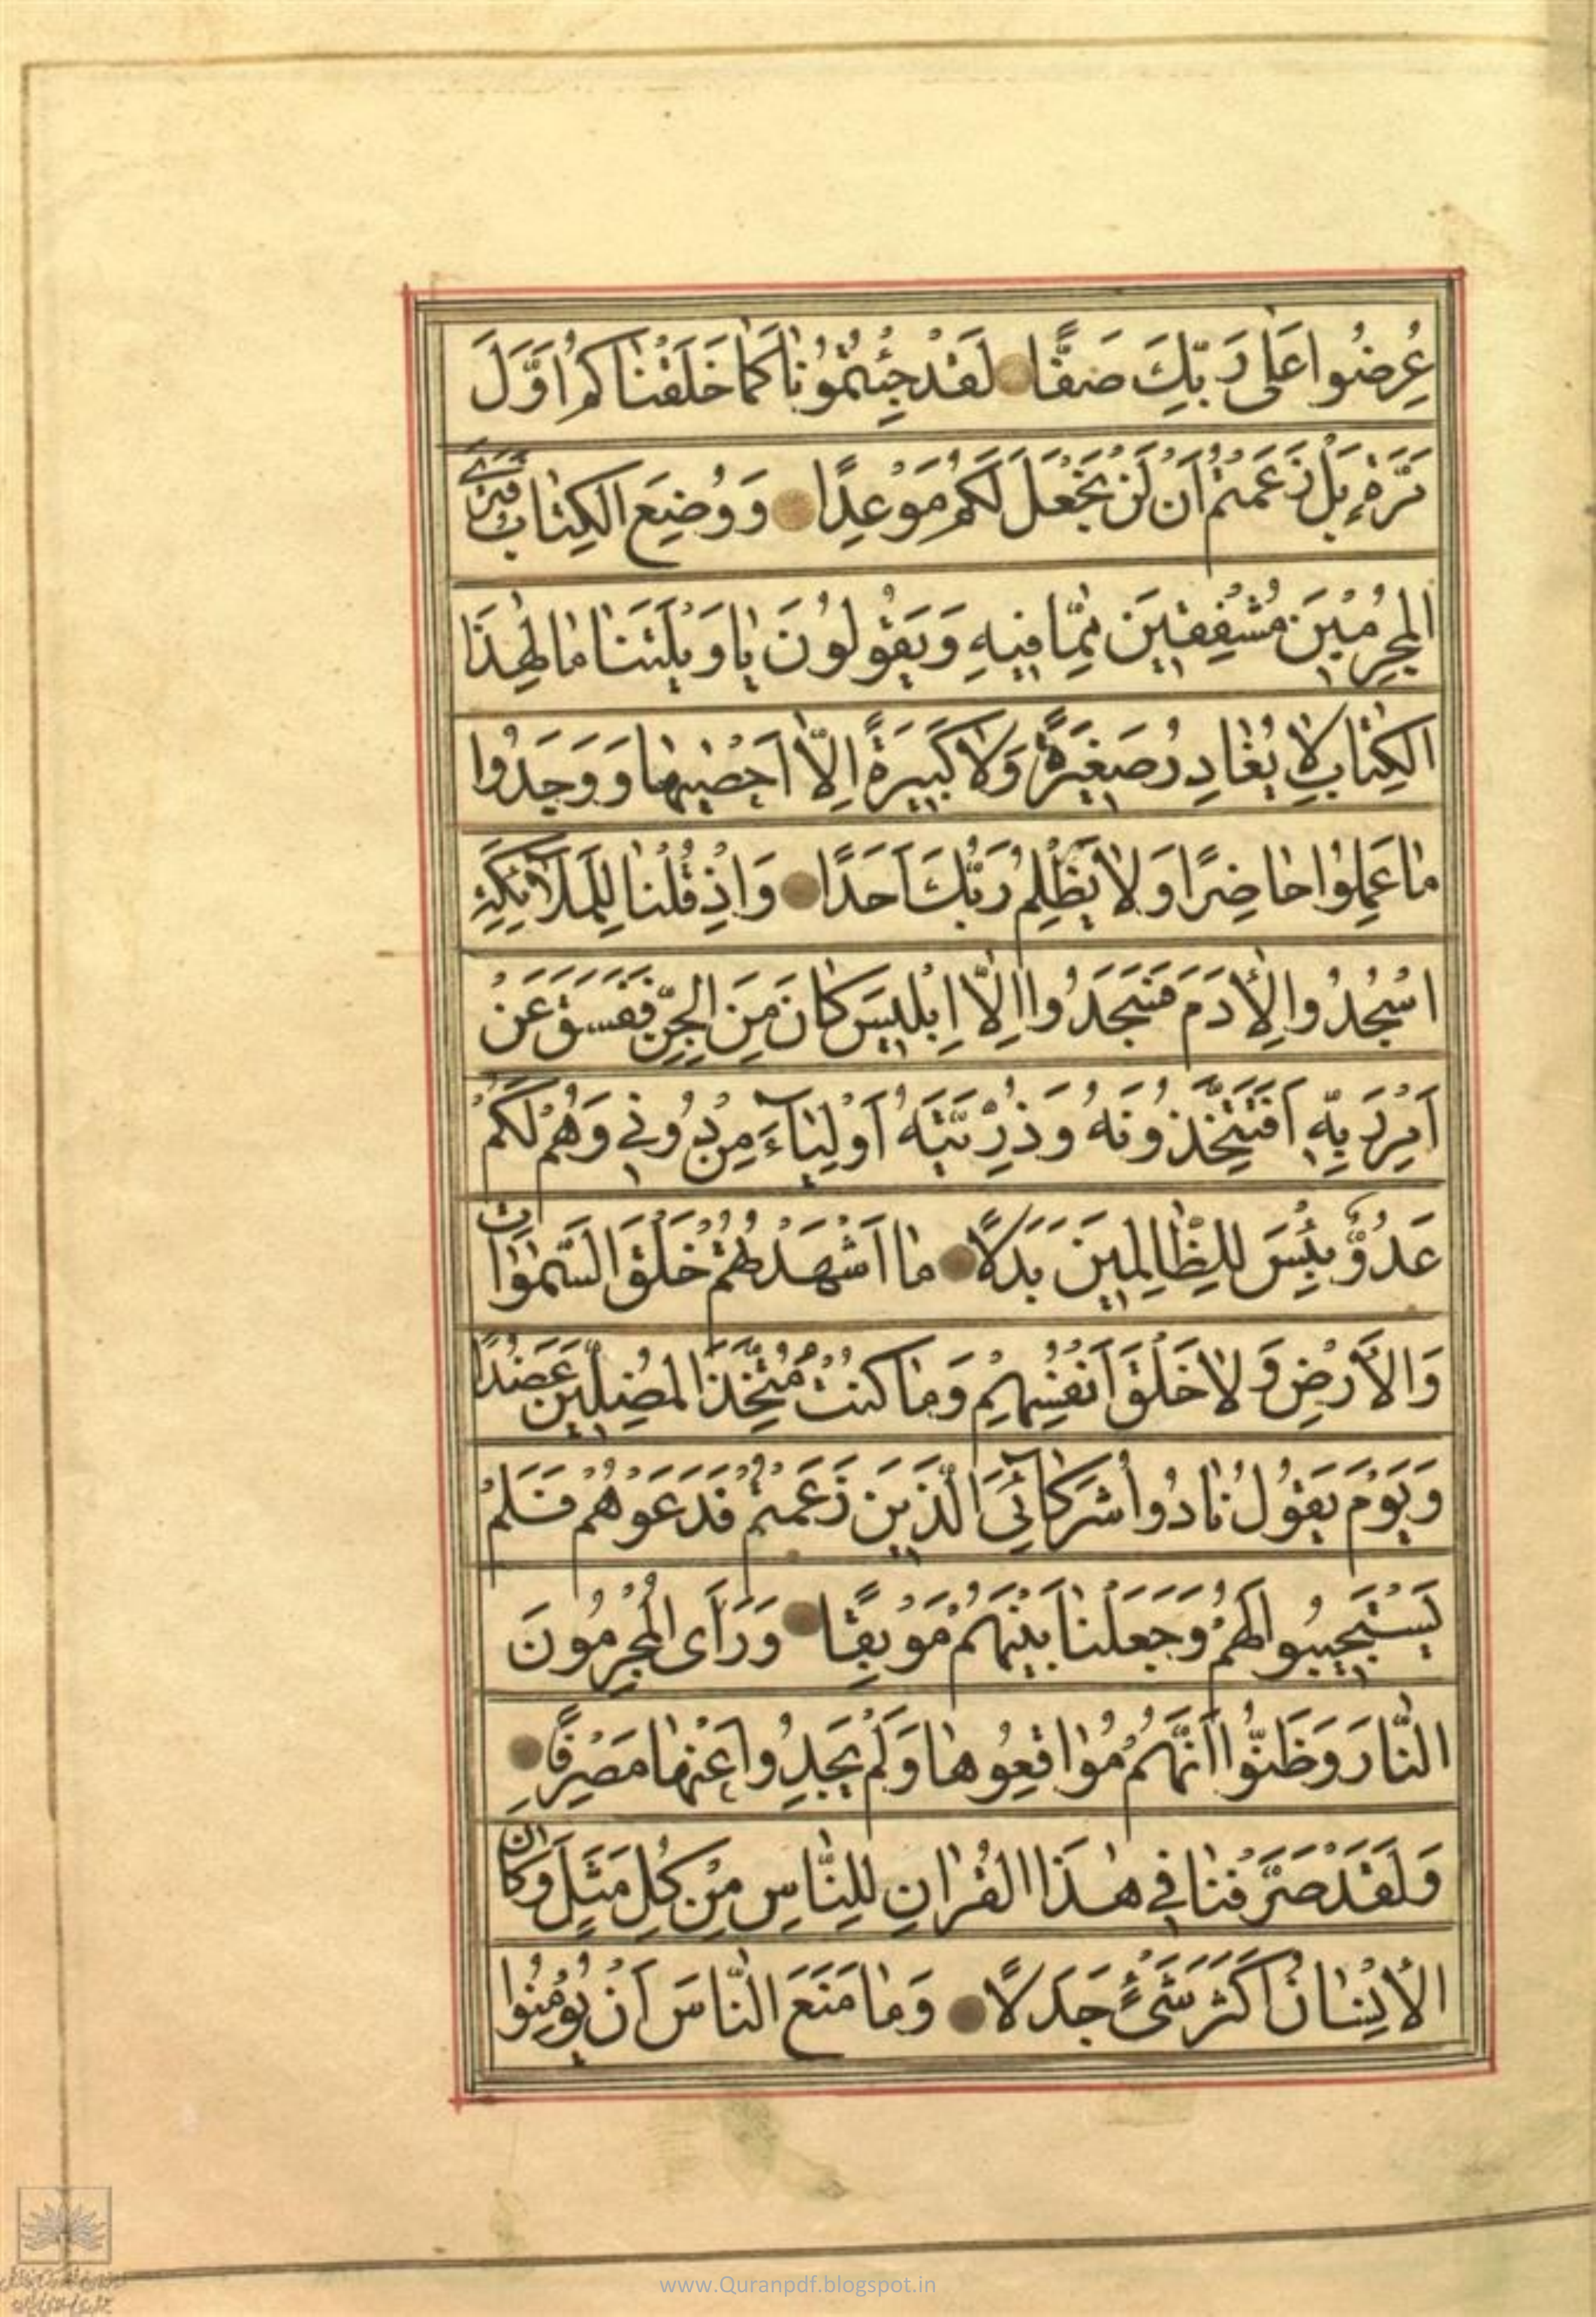 عُرِضُوا عَلٰى رَبِّكَ صَفًّا لَقَدْ جِئْتُمُوْنٰا كَمٰا خَلَقْنٰاكُمْ اَوَّلَ
مَرَّةٍ بَلْ زَعَمْتُمْ اَنْ لَنْ نَجْعَلَ لَكُمْ مَوْعِدًا وَوُضِعَ الْكِتٰابُ فَتَرَى
الْمُجْرِمٖينَ مُشْفِقٖينَ مِمّٰا فٖيهِ وَيَقُولُونَ يٰا وَيْلَتَنٰا مٰا لِهٰذَا
الْكِتٰابِ لٰا يُغٰادِرُ صَغٖيرَةً وَلٰا كَبٖيرَةً اِلّٰا اَحْصٰيهٰا وَوَجَدُوا
مٰا عَمِلُوا حٰاضِرًا وَلٰا يَظْلِمُ رَبُّكَ اَحَدًا وَاِذْ قُلْنٰا لِلْمَلٰٓائِكَةِ
اسْجُدُوا لِاٰدَمَ فَسَجَدُوا اِلّٰا اِبْلٖيسَ كٰانَ مِنَ الْجِنِّ فَفَسَقَ عَنْ
اَمْرِ رَبِّهٖ اَفَتَتَّخِذُونَهُ وَذُرِّيَّتَهُ اَوْلِيٰٓاءَ مِنْ دُونٖي وَهُمْ لَكُمْ
عَدُوٌّ بِئْسَ لِلظّٰالِمٖينَ بَدَلًا مٰا اَشْهَدْتُهُمْ خَلْقَ السَّمٰوٰاتِ
وَالْاَرْضِ وَلٰا خَلْقَ اَنْفُسِهِمْ وَمٰا كُنْتُ مُتَّخِذَ الْمُضِلّٖينَ عَضُدًا
وَيَوْمَ يَقُولُ نٰادُوا شُرَكٰٓائِيَ الَّذٖينَ زَعَمْتُمْ فَدَعَوْهُمْ فَلَمْ
يَسْتَجٖيبُوا لَهُمْ وَجَعَلْنٰا بَيْنَهُمْ مَوْبِقًا وَرَاَى الْمُجْرِمُونَ
النّٰارَ وَظَنُّوا اَنَّهُمْ مُوٰاقِعُوهٰا وَلَمْ يَجِدُوا عَنْهٰا مَصْرِفًا
وَلَقَدْ صَرَّفْنٰا فٖي هٰذَا الْقُرْاٰنِ لِلنّٰاسِ مِنْ كُلِّ مَثَلٍ وَكٰانَ
الْاِنْسٰانُ اَكْثَرَ شَيْءٍ جَدَلًا وَمٰا مَنَعَ النّٰاسَ اَنْ يُؤْمِنُوا
www.Quranpdf.blogspot.in